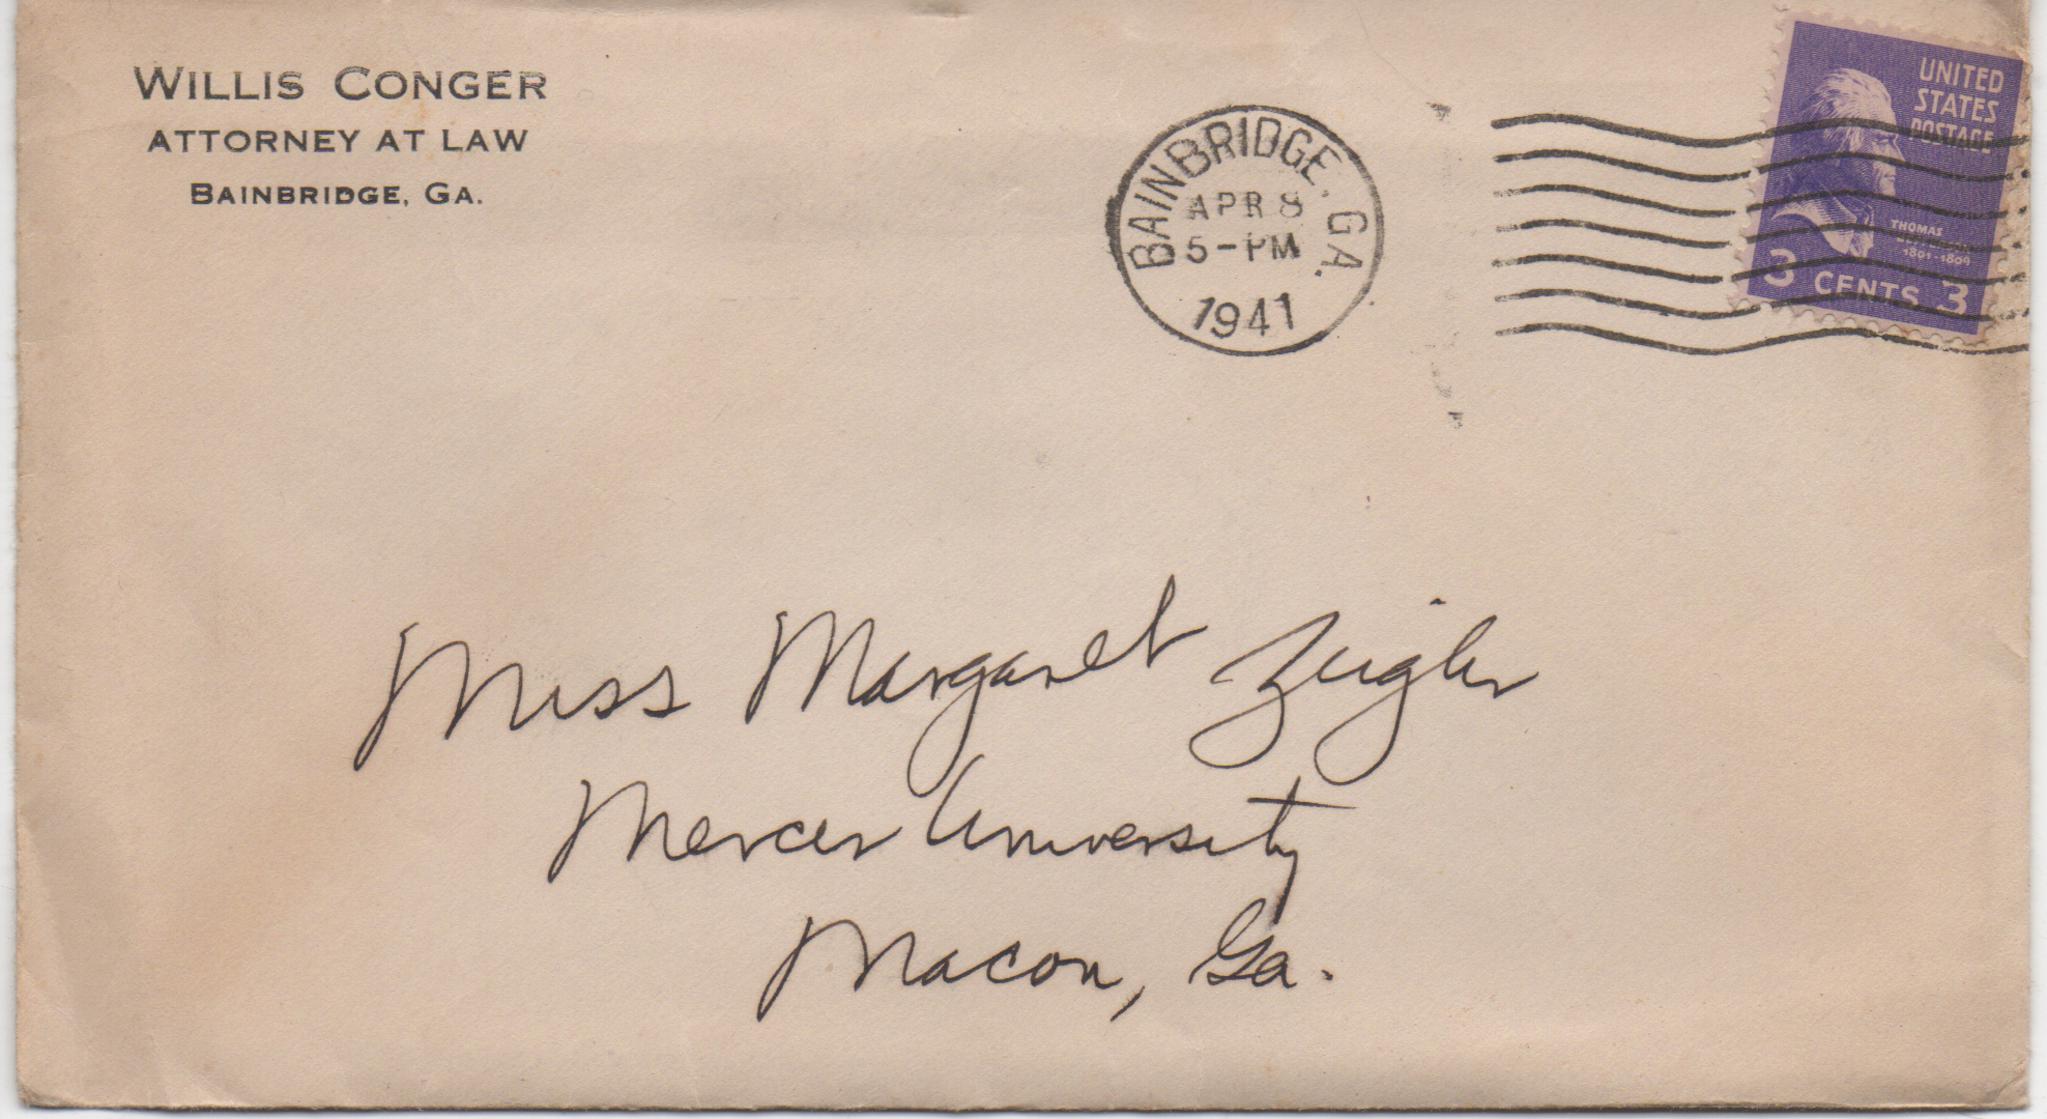 WILLIS CONGER
ATTORNEY AT LAW
BAINBRIDGE, GA.
BAINBRIDGE, GA.
APR 8
5-PM
1941
UNITED
STATES
POSTAGE
THOMAS
JEFFERSON
1801-1809
3 CENTS 3
Miss Margaret Zeigler
Mercer University
Macon, Ga.